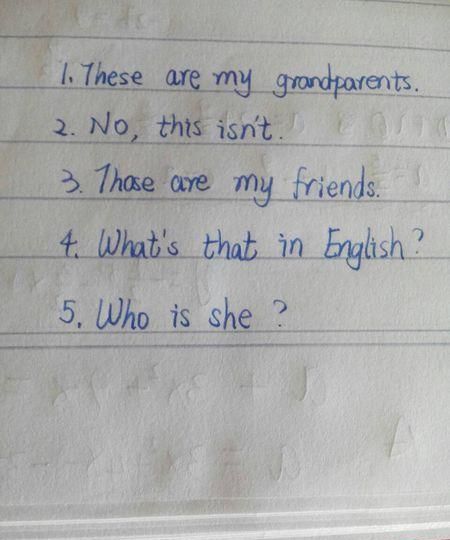 1. These are my grandparents.
2. No, this isn't.
3. Those are my friends.
4. What's that in English?
5. Who is she?